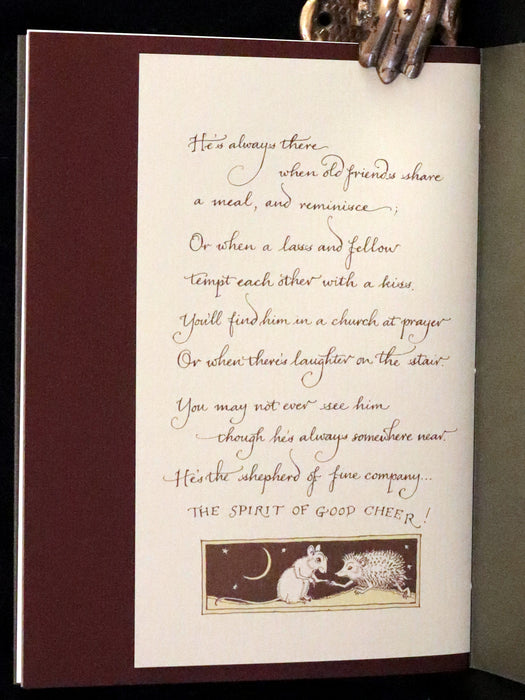 He's always there
when old friends share
a meal, and reminisce;
Or when a lass and fellow
tempt each other with a kiss.
You'll find him in a church at prayer
Or when there's laughter on the stair.
You may not ever see him
though he's always somewhere near.
He's the shepherd of fine company...
THE SPIRIT OF GOOD CHEER!